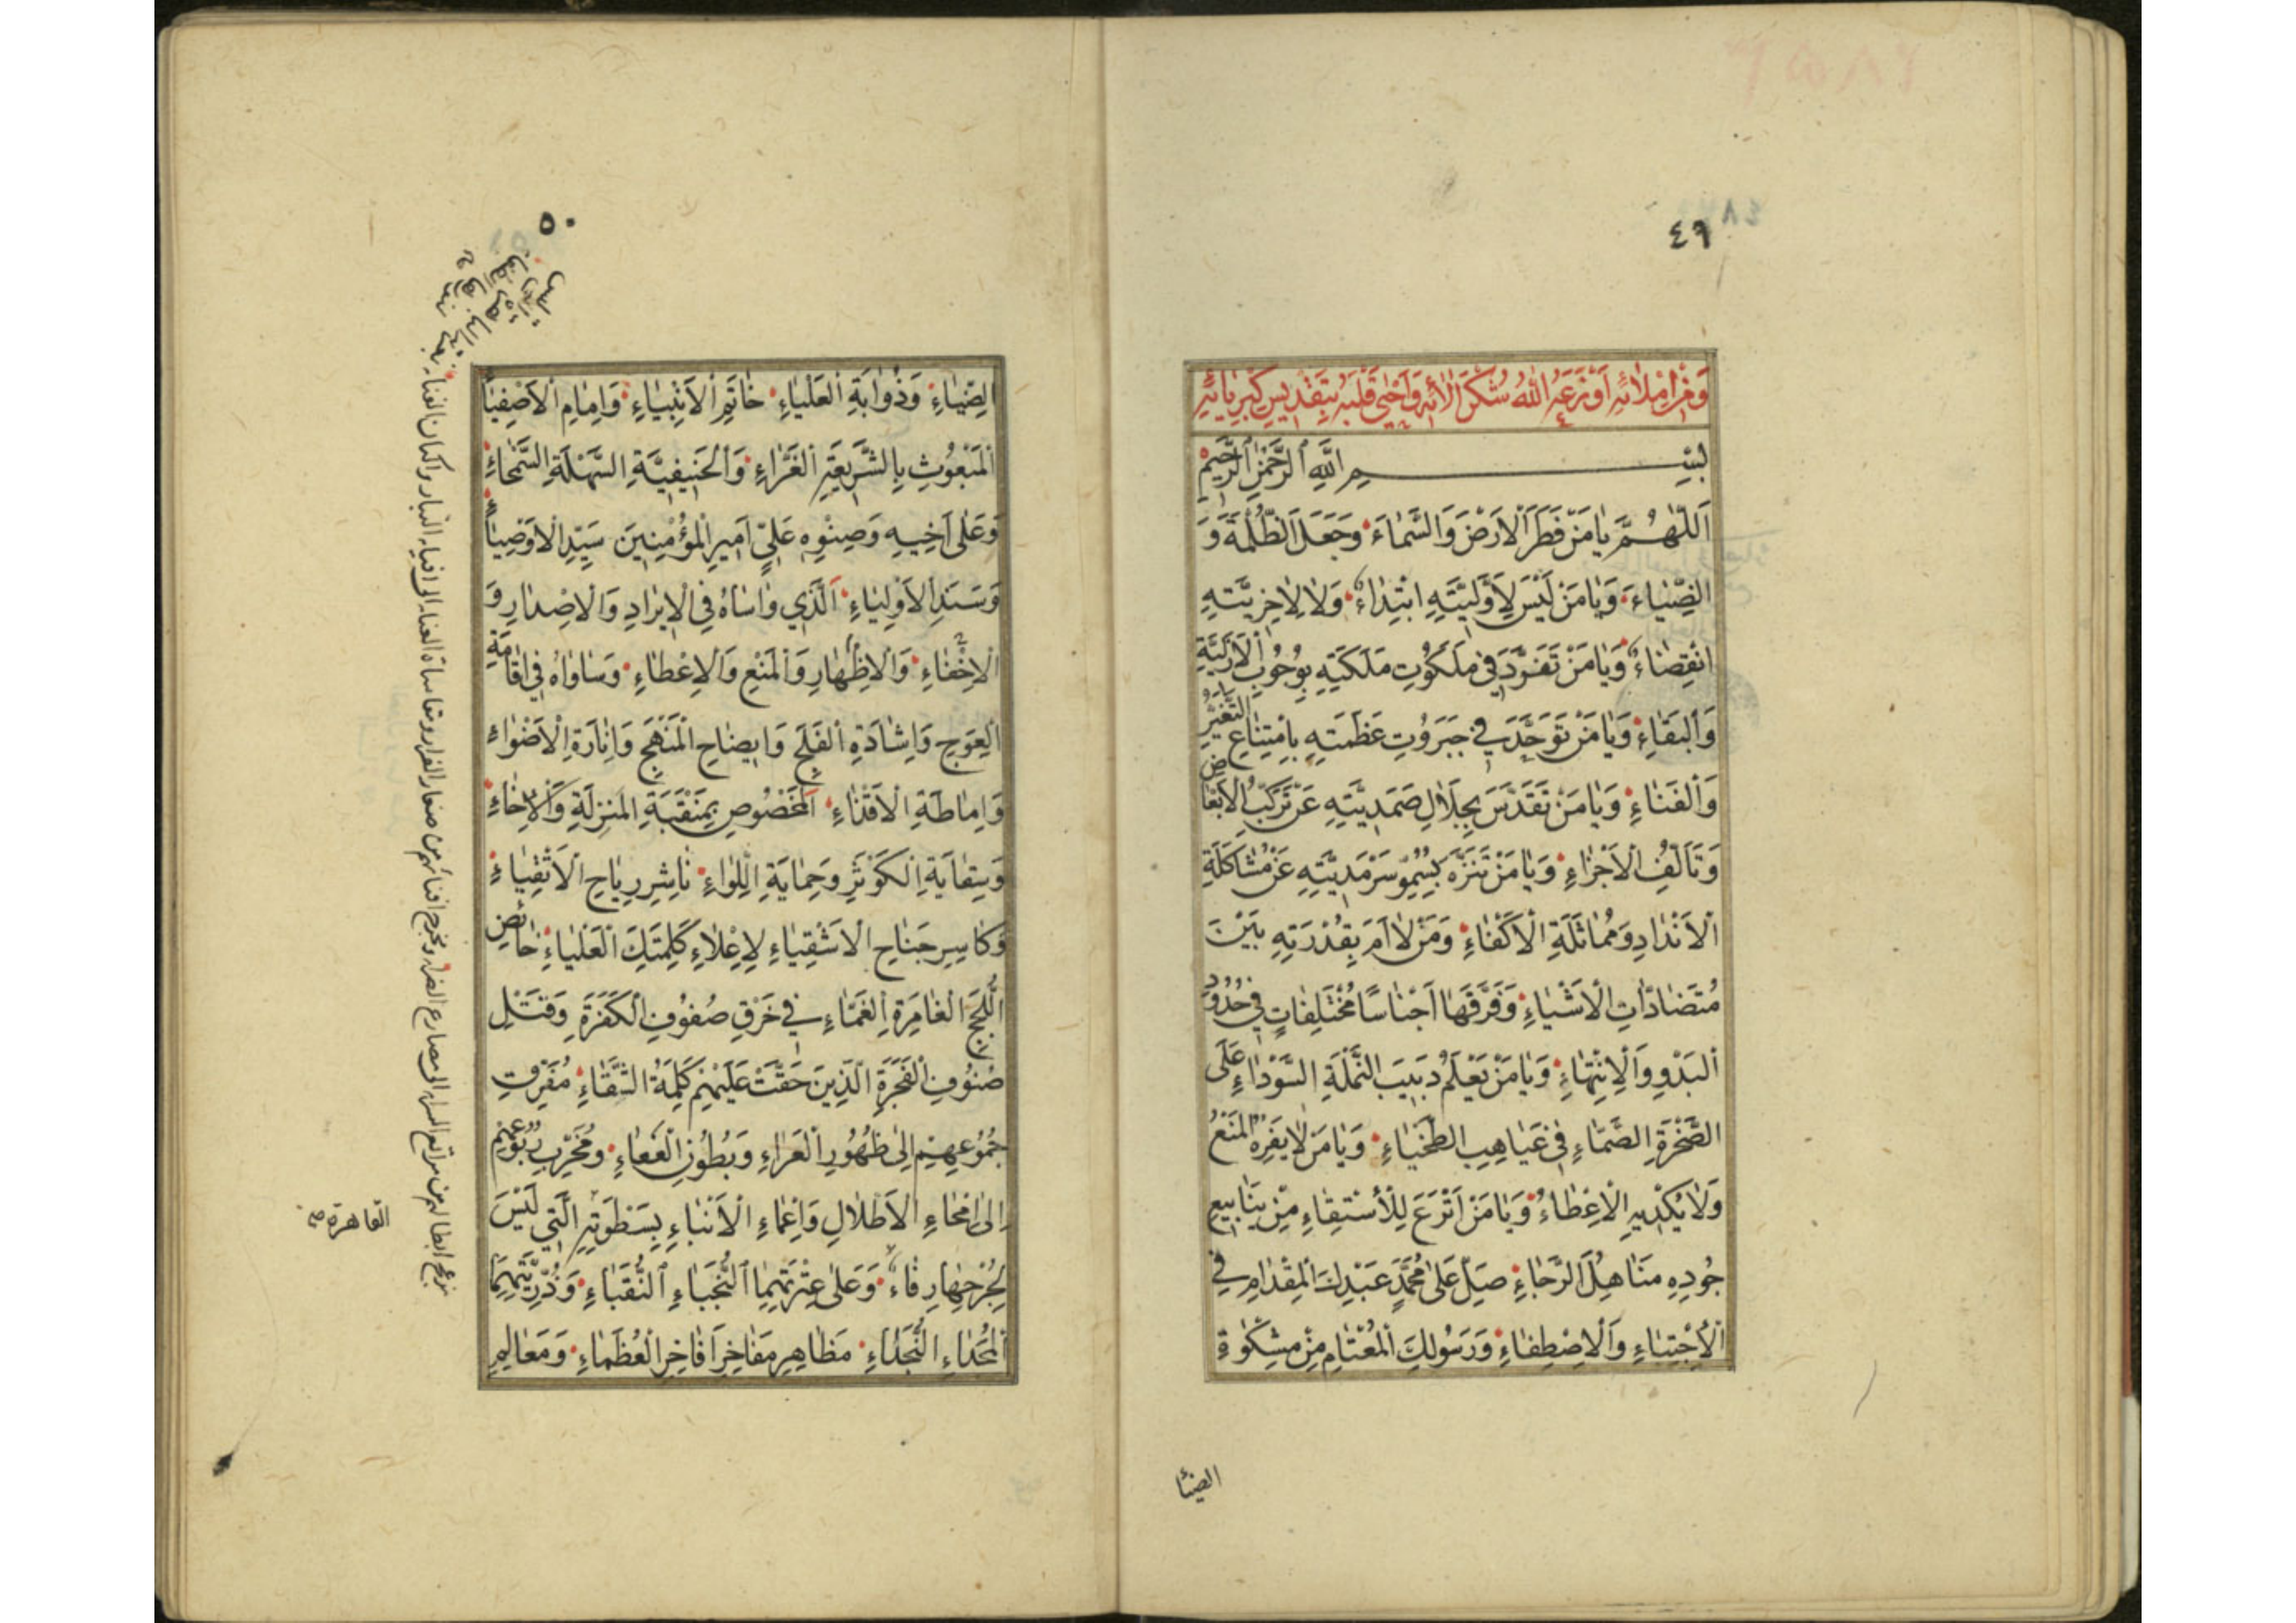 ٤٩
وَمِنْ اِمْلَائِهِ اَوْزَعَهُ اللهُ شُكْرَ اٰلَائِهِ وَاَحْيٰى قَلْبَهُ بِتَقْدِيسِ كِبْرِيَائِهِ
بِسْمِ اللهِ الرَّحْمٰنِ الرَّحِيمِ
اَللّٰهُمَّ يَا مَنْ فَطَرَ الْاَرْضَ وَالسَّمَاءَ وَجَعَلَ الظُّلْمَةَ وَ
الضِّيَاءَ وَيَا مَنْ لَيْسَ لِاَوَّلِيَّتِهِ ابْتِدَاءٌ وَلَا لِاٰخِرِيَّتِهِ
انْقِضَاءٌ وَيَا مَنْ تَفَرَّدَ فِي مَلَكُوتِ مَلَكَتِهِ بِوُجُوبِ الْاَزَلِيَّةِ
وَالْبَقَاءِ وَيَا مَنْ تَوَحَّدَ فِي جَبَرُوتِ عَظَمَتِهِ بِامْتِنَاعِ التَّغَيُّرِ
وَالْفَنَاءِ وَيَا مَنْ تَقَدَّسَ بِجَلَالِ صَمَدِيَّتِهِ عَنْ تَرَكُّبِ الْاَبْعَاضِ
وَتَاَلُّفِ الْاَجْزَاءِ وَيَا مَنْ تَنَزَّهَ بِسُمُوِّ سَرْمَدِيَّتِهِ عَنْ مُشَاكَلَةِ
الْاَنْدَادِ وَمُمَاثَلَةِ الْاَكْفَاءِ وَمَنْ لَاءَمَ بِقُدْرَتِهِ بَيْنَ
مُتَضَادَّاتِ الْاَشْيَاءِ وَفَرَّقَهَا اَجْنَاسًا مُخْتَلِفَاتٍ فِي حُدُودِ
الْبَدْوِ وَالْاِنْتِهَاءِ وَيَا مَنْ يَعْلَمُ دَبِيبَ النَّمْلَةِ السَّوْدَاءِ عَلَى
الصَّخْرَةِ الصَّمَّاءِ فِي غَيَاهِبِ الطَّخْيَاءِ وَيَا مَنْ لَا يَفِرُهُ الْمَنْعُ
وَلَا يُكْدِيهِ الْاِعْطَاءُ وَيَا مَنْ اَتْرَعَ لِلْاُسْتِقَاءِ مِنْ يَنَابِيعِ
جُودِهِ مَنَاهِلَ الرَّجَاءِ صَلِّ عَلَى مُحَمَّدٍ عَبْدِكَ الْمِقْدَامِ فِي
الْاِجْتِبَاءِ وَالْاِصْطِفَاءِ وَرَسُولِكَ الْمُعْتَامِ مِنْ مِشْكٰوةِ
الضيا
٥٠
الضِّيَاءِ وَذُؤَابَةِ الْعَلْيَاءِ خَاتَمِ الْاَنْبِيَاءِ وَاِمَامِ الْاَصْفِيَاءِ
الْمَبْعُوثِ بِالشَّرِيعَةِ الْغَرَّاءِ وَالْحَنِيفِيَّةِ السَّهْلَةِ السَّمْحَاءِ
وَعَلَى اَخِيهِ وَصِنْوِهِ عَلِيٍّ اَمِيرِ الْمُؤْمِنِينَ سَيِّدِ الْاَوْصِيَاءِ
وَسَنَدِ الْاَوْلِيَاءِ اَلَّذِي وَاسَاهُ فِي الْاِيرَادِ وَالْاِصْدَارِ وَ
الْاِخْفَاءِ وَالْاِظْهَارِ وَالْمَنْعِ وَالْاِعْطَاءِ وَسَاوَاهُ فِي اِقَامَةِ
الْعِوَجِ وَاِشَادَةِ الْفَلَجِ وَاِيضَاحِ الْمَنْهَجِ وَاِنَارَةِ الْاَضْوَاءِ
وَاِمَاطَةِ الْاَقْذَاءِ اَلْمَخْصُوصِ بِمَنْقَبَةِ الْمَنْزِلَةِ وَالْاِخَاءِ
وَسِقَايَةِ الْكَوْثَرِ وَحِمَايَةِ اللِّوَاءِ نَاشِرِ رِيَاحِ الْاَتْقِيَاءِ
وَكَاسِرِ جَنَاحِ الْاَشْقِيَاءِ لِاِعْلَاءِ كَلِمَتِكَ الْعَلْيَاءِ خَائِضِ
اللُّجَجِ الْغَامِرَةِ الْغَمَّاءِ فِي خَرْقِ صُفُوفِ الْكَفَرَةِ وَقَتْلِ
صُنُوفِ الْفَجَرَةِ الَّذِينَ حَقَّتْ عَلَيْهِمْ كَلِمَةُ الشَّقَاءِ مُفَرِّقِ
جُمُوعِهِمْ اِلَى ظُهُورِ الْعَرَاءِ وَبُطُونِ الْعَفَاءِ وَمُخَرِّبِ رُبُوعِهِمْ
اِلَى امْحَاءِ الْاَطْلَالِ وَاِغْمَاءِ الْاَنْبَاءِ بِسَطْوَتِهِ الَّتِي لَيْسَ
لِجُرْحِهَا رِفَاءٌ وَعَلَى عِتْرَتِهِمَا النُّجَبَاءِ النُّقَبَاءِ وَذُرِّيَّتِهِمَا
الْمُجَدَاءِ النُّجَدَاءِ مَظَاهِرِ مَفَاخِرِ اَفَاخِرِ الْعُظَمَاءِ وَمَعَالِيمِ
القاهرة